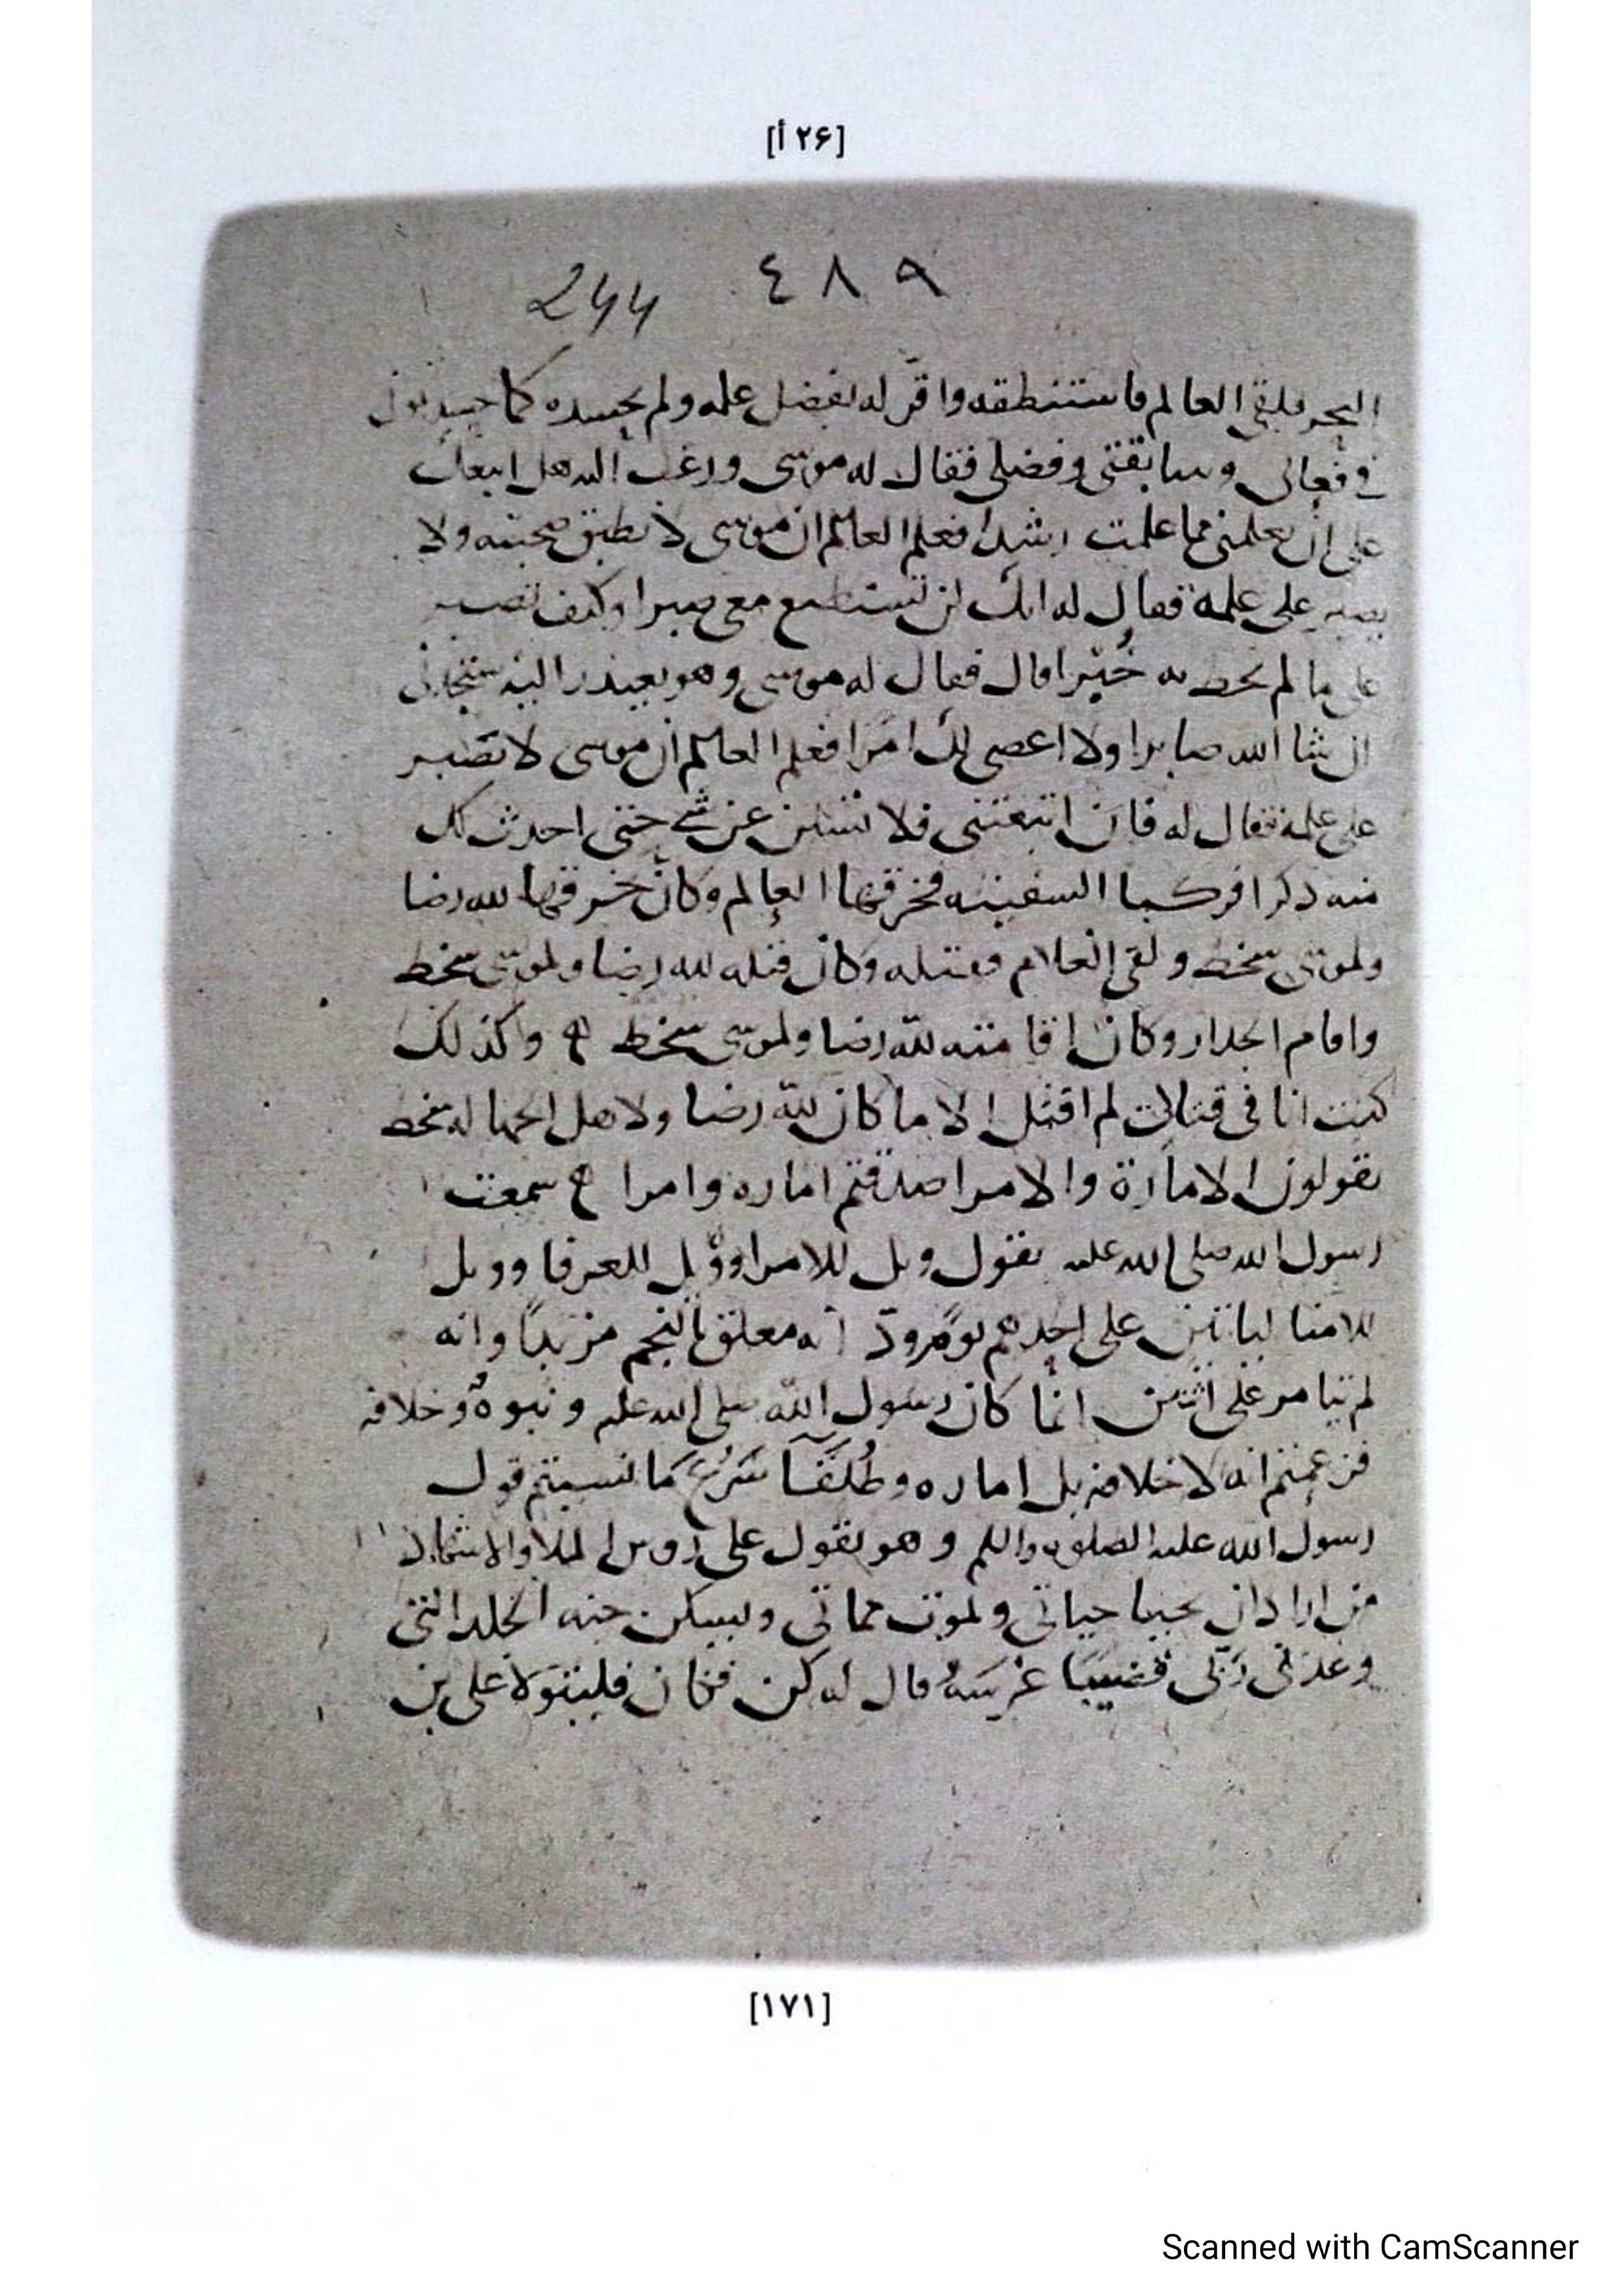 [۲۶ أ]
244 ٤٨٩
البحر فلقي العالم فاستنطقه واقر له بفضل علمه ولم يحسده كما
في فعالى وسابقتى وفضلى فقال له موسى ورغب اليه هل اتبعك
على ان تعلمنى مما علمت رشدا فعلم العالم ان موسى لا يطيق صحبته ولا
يصبر على علمه فقال له انك لن تستطيع معي صبرا وكيف تصبر
على ما لم تحط به خُبْرا قال فقال له موسى وهو يعتذر اليه ستجدنى
ان شا الله صابرا ولا اعصى لك امرا فعلم العالم ان موسى لا يصبر
على علمه فقال له فان اتبعتنى فلا تسئلن عن شي حتى احدث لك
منه ذكرا فركبا السفينه فخرقها العالم وكان خرقها لله رضا
ولموسى سخط ولقى الغلام فقتله وكان قتله لله رضا ولموسى سخط
واقام الجدار وكان اقامته لله رضا ولموسى سخط وكذلك
كنت انا في لم اقتل الا ما كان لله رضا ولاهل الجهاله سخط
تقولون الامارة والامرا صدقتم اماره وامرا سمعت
رسول الله صلى الله عليه يقول ويل للامرا وويل للعرفا وويل
للامنا لياتين على احدهم يوم يودّ انه معلق بالنجم من يداً وانه
لم يتامر على اثنين انما كان رسول الله صلى الله عليه و نبوة وخلافه
فزعمتم انه لا خلافه بل اماره وطُلَقَآ ما نسيتم قول
رسول الله عليه الصلوة والسلم وهو يقول على روس الملا والاشهاد
من اراد ان يحيا حياتي ويموت مماتي ويسكن جنه الخلد التي
وعدني رَبّى قضيبًا غرسَهُ قال له كن فكان فليتولا على بن
[۱۷۱]
Scanned with CamScanner